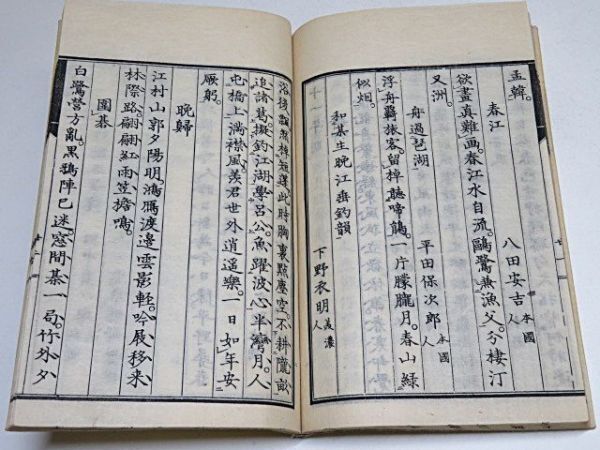 孟韓。
春江 八田安吉 本國人
欲盡真難画。春江水自流。鷗鷺兼漁父。分棲汀
又洲。
舟過琵湖 平田保次郎 本國人
浮舟羇旅客。留棹聽啼鵑。一片朦朧月。春山緑
似烟。
和某生晩江垂釣韻 下野衣明 美濃人
浴後飄然棹短蓬此時胸裏點塵空。不耕隴畝
追諸葛。擬釣江湖學呂公。魚躍波心半灣月。人
屯橋上満襟風。羨君世外逍遥樂。一日如年安
厥躬。
晩歸
江村山郭夕陽明。鴻雁渡邊雲影輕。吟屐移来
林際路。翩翩紅雨笠擔鳴。
圍碁
白鷺營方亂。黒鵶陣已迷。窓閒碁一局。竹外夕